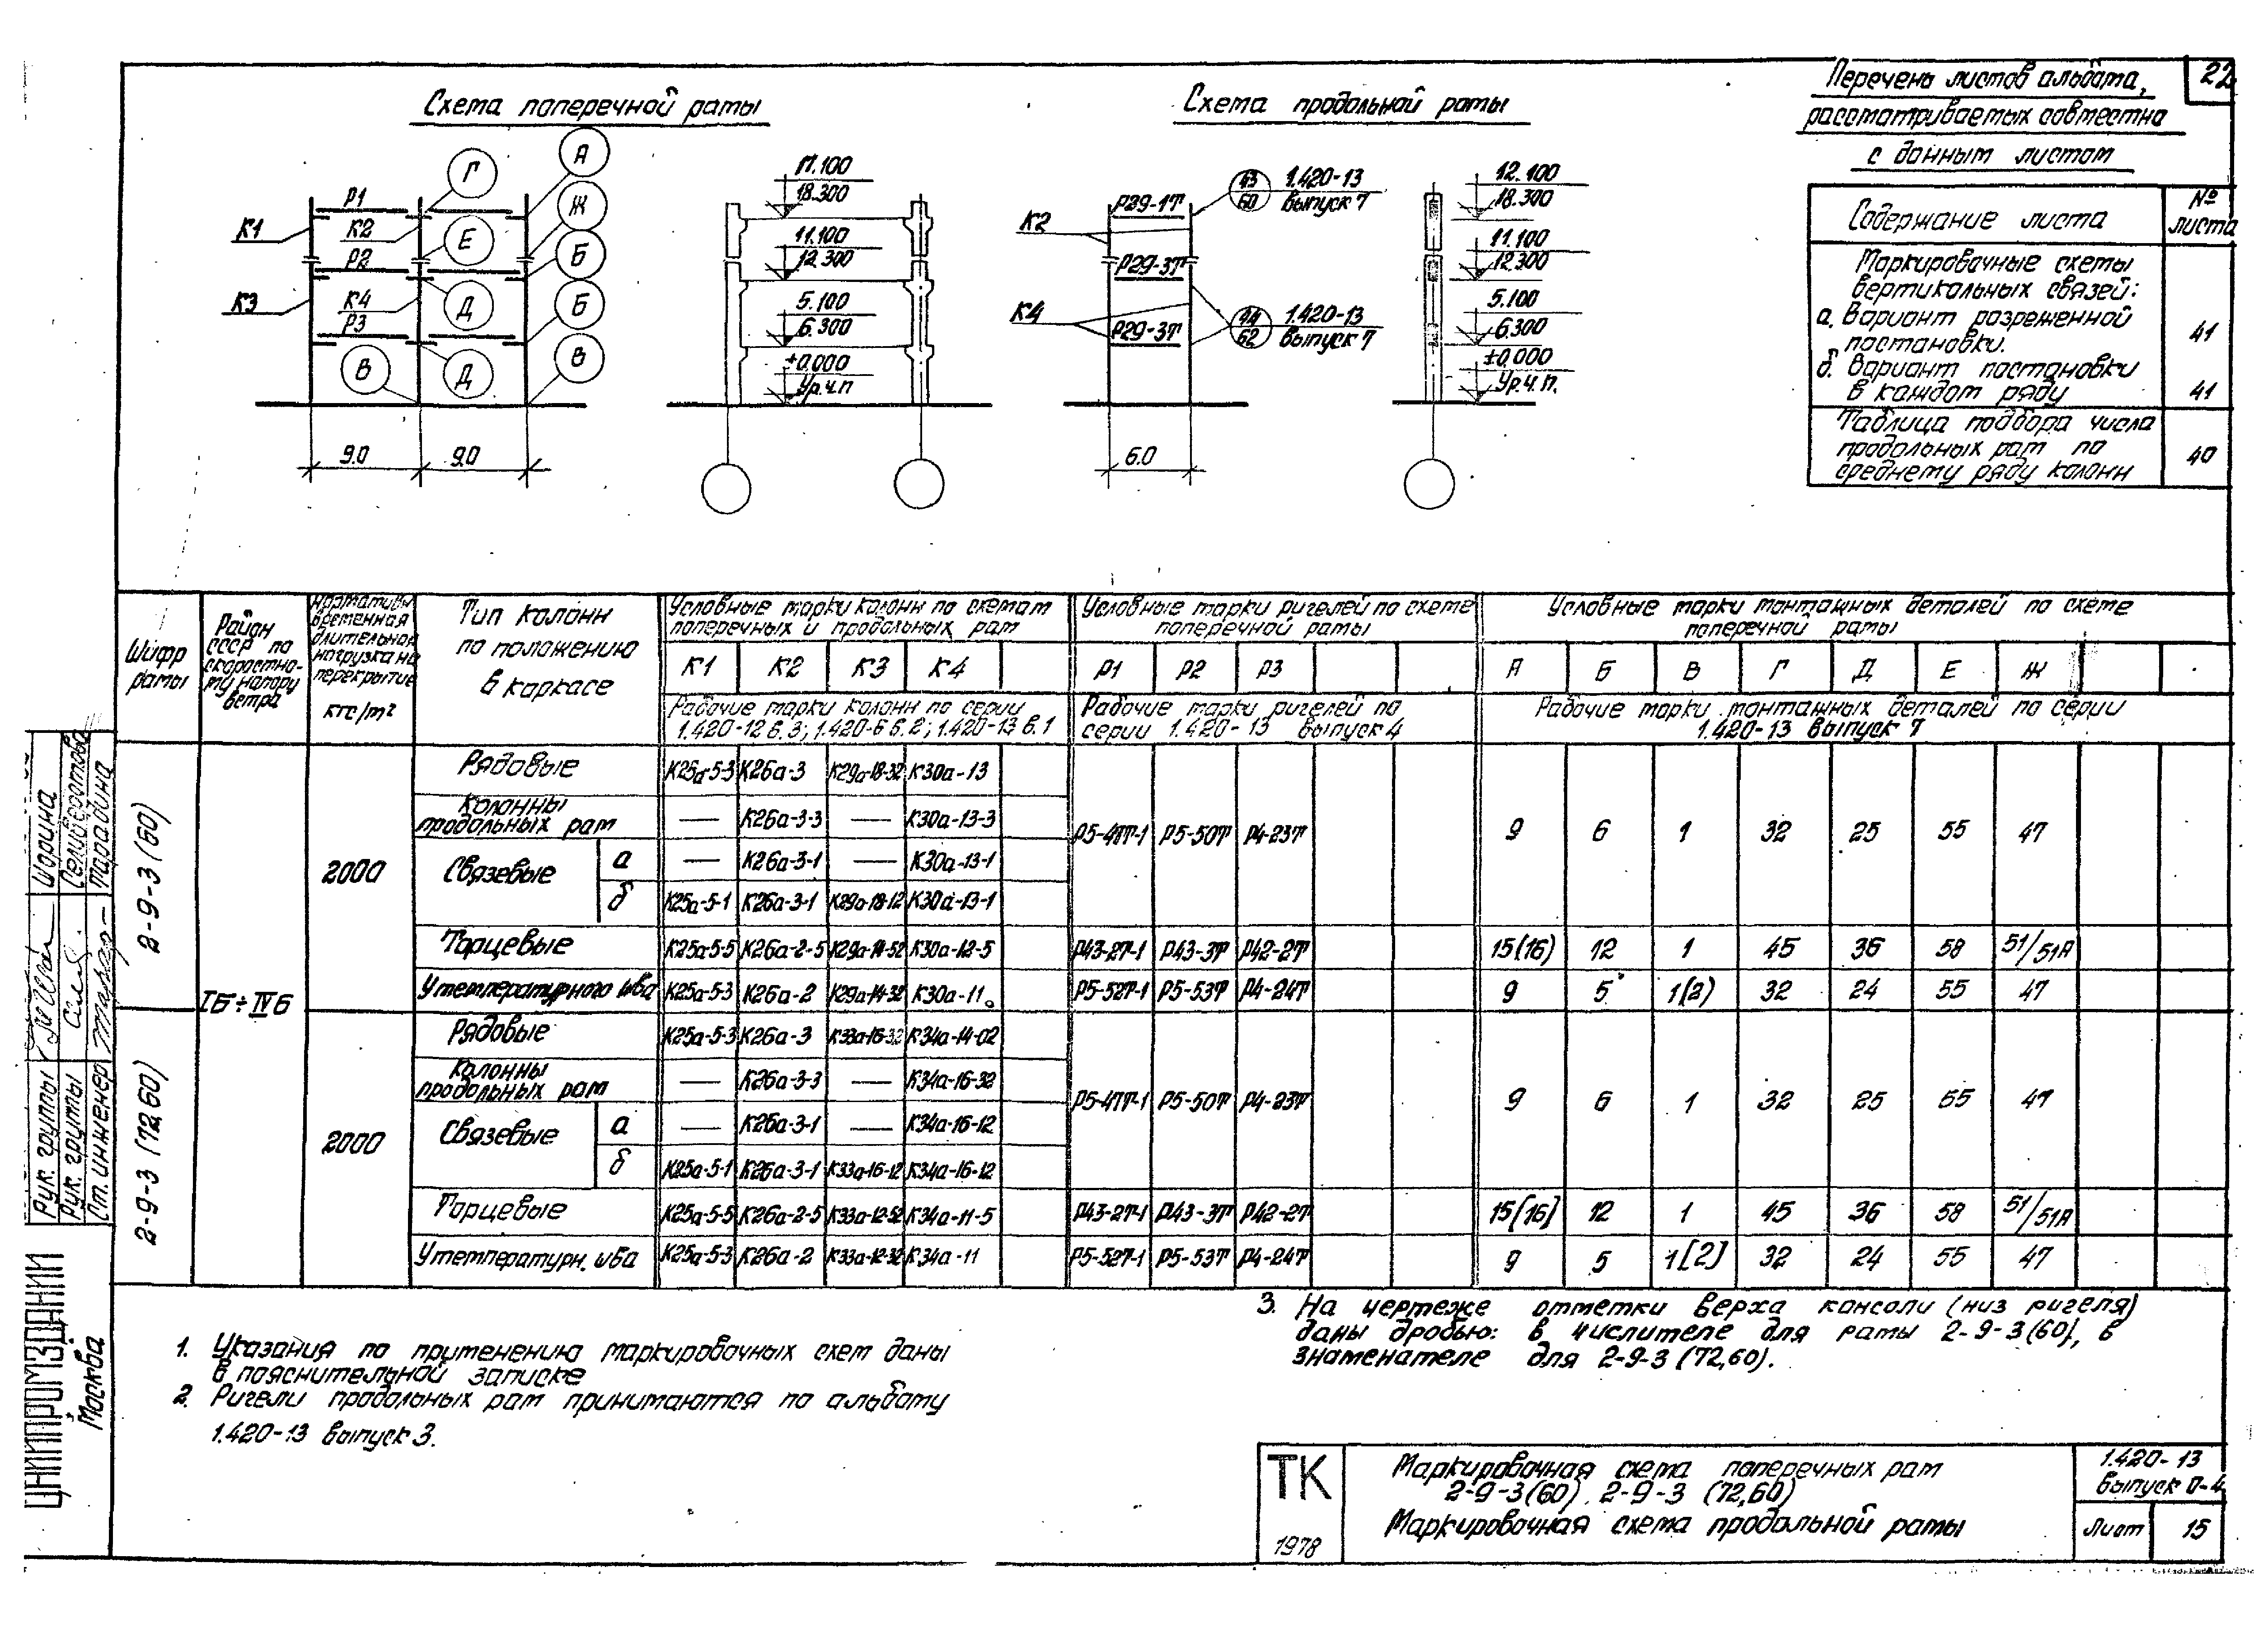 22
Схема поперечной рамы
А
Г
Ж
Р1
К1
К2
Е
Р2
Б
К3
К4
Д
Б
Р3
В
Д
В
9.0
9.0
17.100
18.300
11.100
12.300
5.100
6.300
±0.000
Ур.ч.п
Схема продольной рамы
К2
Р29-1Т
43
60
1.420-13
выпуск 7
Р29-3Т
К4
Р29-3Т
44
62
1.420-13
выпуск 7
6.0
12.100
18.300
11.100
12.300
5.100
6.300
±0.000
Ур.ч.п.
Перечень листов альбома,
рассматриваемых совместно
с данным листом
Содержание листа
№ листа
Маркировочные схемы
вертикальных связей:
а. Вариант разреженной
постановки.
41
б. Вариант постановки
в каждом ряду
41
Таблица подбора числа
продольных рам по
среднему ряду колонн
40
Шифр рамы
Район СССР по скоростному напору ветра
Нормативн. временная длительная нагрузка на перекрытие кгс/м²
Тип колонн по положению в каркасе
Условные марки колонн по схемам поперечных и продольных рам
Условные марки ригелей по схеме поперечной рамы
Условные марки монтажных деталей по схеме поперечной рамы
К1 К2 К3 К4
Р1 Р2 Р3
А Б В Г Д Е Ж
Рабочие марки колонн по серии 1.420-12 в.3; 1.420-6 в.2; 1.420-13 в.1
Рабочие марки ригелей по серии 1.420-13 выпуск 4
Рабочие марки монтажных деталей по серии 1.420-13 выпуск 7
2-9-3 (60)
IБ÷IVБ
2000
Рядовые К25а-5-3 К26а-3 К29а-18-32 К30а-13
Колонны продольных рам — К26а-3-3 — К30а-13-3
Р5-48Т-1 Р5-50Т Р4-23Т 9 6 1 32 25 55 47
Связевые а — К26а-3-1 — К30а-13-1
б К25а-5-1 К26а-3-1 К29а-18-12 К30а-13-1
Торцевые К25а-5-5 К26а-2-5 К29а-14-52 К30а-12-5 Р43-2Т-1 Р43-3Т Р42-2Т 15(16) 12 1 45 36 58 51/51А
У температурного шва К25а-5-3 К26а-2 К29а-14-32 К30а-11 Р5-52Т-1 Р5-53Т Р4-24Т 9 5 1(2) 32 24 55 47
2-9-3 (72,60)
2000
Рядовые К25а-5-3 К26а-3 К33а-16-32 К34а-14-02
Колонны продольных рам — К26а-3-3 — К34а-16-32
Р5-47Т-1 Р5-50Т Р4-23Т 9 6 1 32 25 55 47
Связевые а — К26а-3-1 — К34а-16-12
б К25а-5-1 К26а-3-1 К33а-16-12 К34а-16-12
Торцевые К25а-5-5 К26а-2-5 К33а-12-52 К34а-11-5 Р43-2Т-1 Р43-3Т Р42-2Т 15[16] 12 1 45 36 58 51/51А
У температурн. шва К25а-5-3 К26а-2 К33а-12-32 К34а-11 Р5-52Т-1 Р5-53Т Р4-24Т 9 5 1[2] 32 24 55 47
1. Указания по применению маркировочных схем даны
в пояснительной записке
2. Ригели продольных рам принимаются по альбому
1.420-13 выпуск 3.
3. На чертеже отметки верха консоли (низ ригеля)
даны дробью: в числителе для рамы 2-9-3(60), в
знаменателе для 2-9-3 (72,60).
ТК
1978
Маркировочная схема поперечных рам
2-9-3(60), 2-9-3 (72,60)
Маркировочная схема продольной рамы
1.420-13
выпуск 0-4
Лист 15
Рук. группы Шорина
Рук. группы Селиверстова
Ст. инженер Тарабина
ЦНИИПРОМЗДАНИЙ
Москва